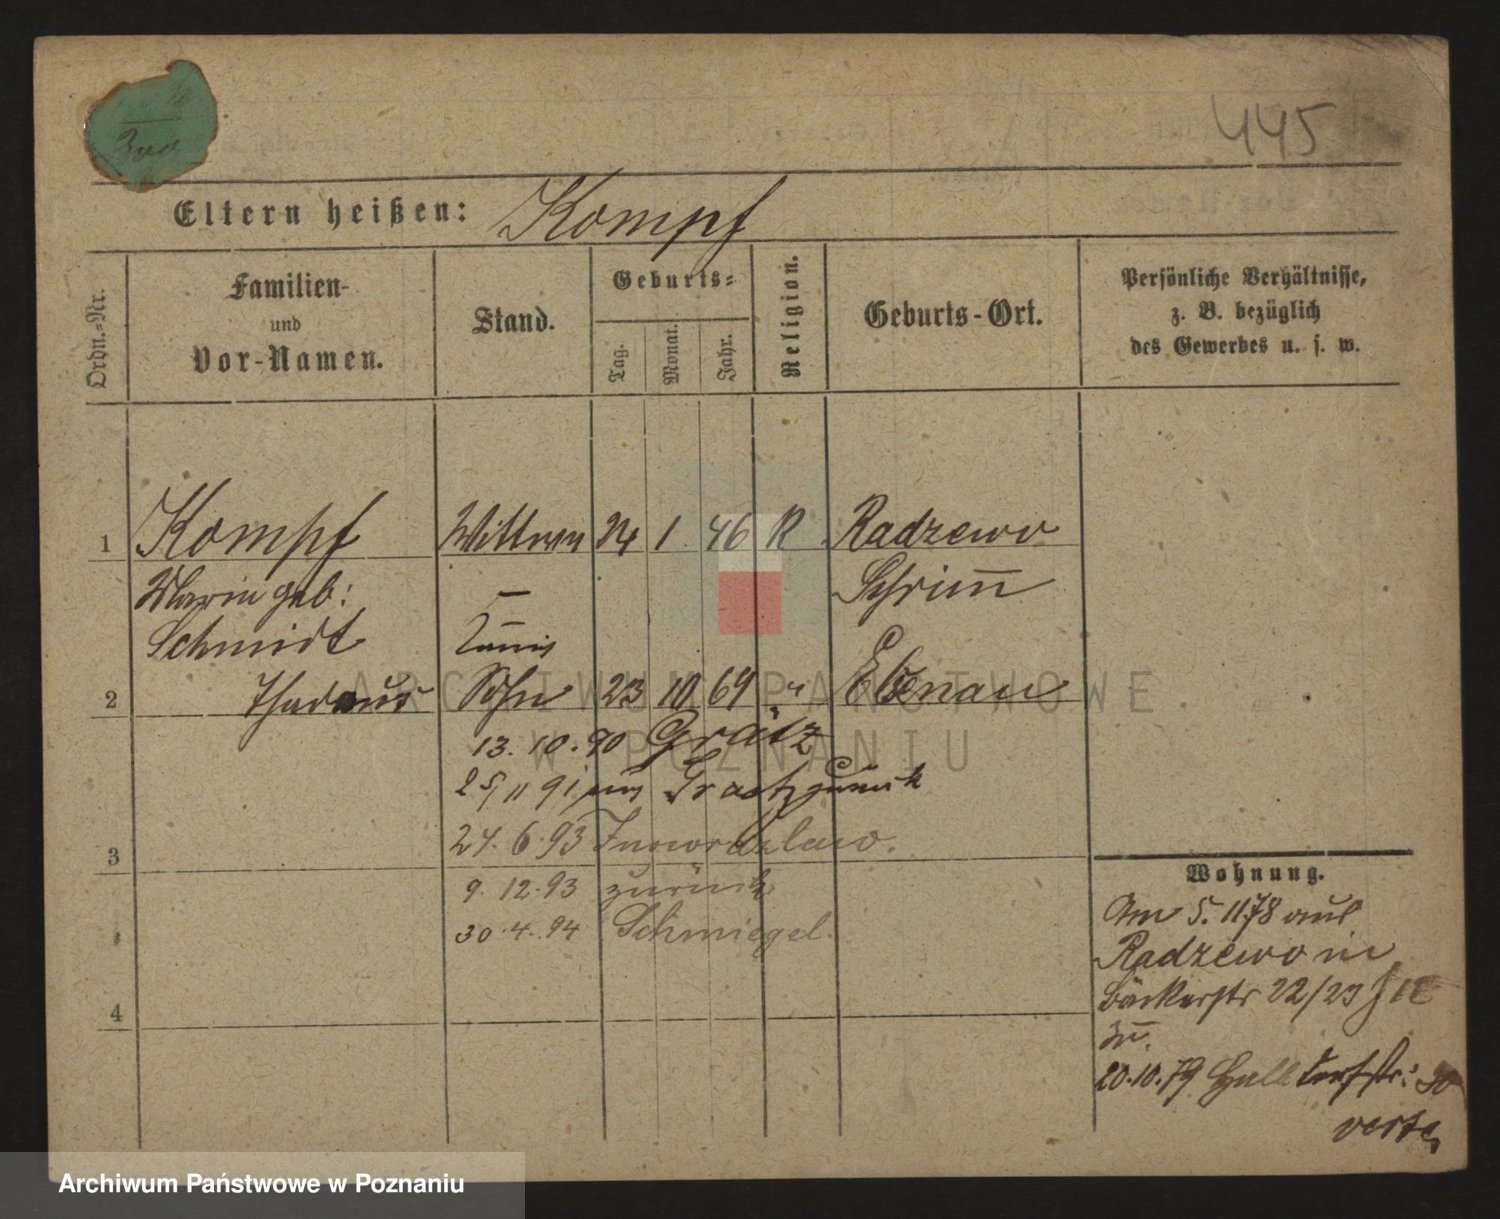 445
Eltern heißen: Kompf
Ordn.-Nr.
Familien-
und
Vor-Namen.
Stand.
Geburts-
Tag.
Monat.
Jahr.
Religion.
Geburts-Ort.
Persönliche Verhältnisse,
z. B. bezüglich
des Gewerbes u. s. w.
1 Kompf Wittwe 24 1. 46 R Radzewo
Marie geb: Schrim̅
Schmidt
2 Thadäus Sohn 23 10 69 " Ebenau
13. 10. 90 Grätz
25/11 91 aus Graetz zurück
24. 6. 93 Inowrazlaw.
3
9. 12. 93 zurück
30. 4. 94 Schmiegel.
4
Wohnung.
Am 5. 11 78 aus
Radzewo in
Bäckerstr 22/23
20.10.79 Halbdorfstr: 30
verte
ARCHIWUM PAŃSTWOWE
W POZNANIU
Archiwum Państwowe w Poznaniu